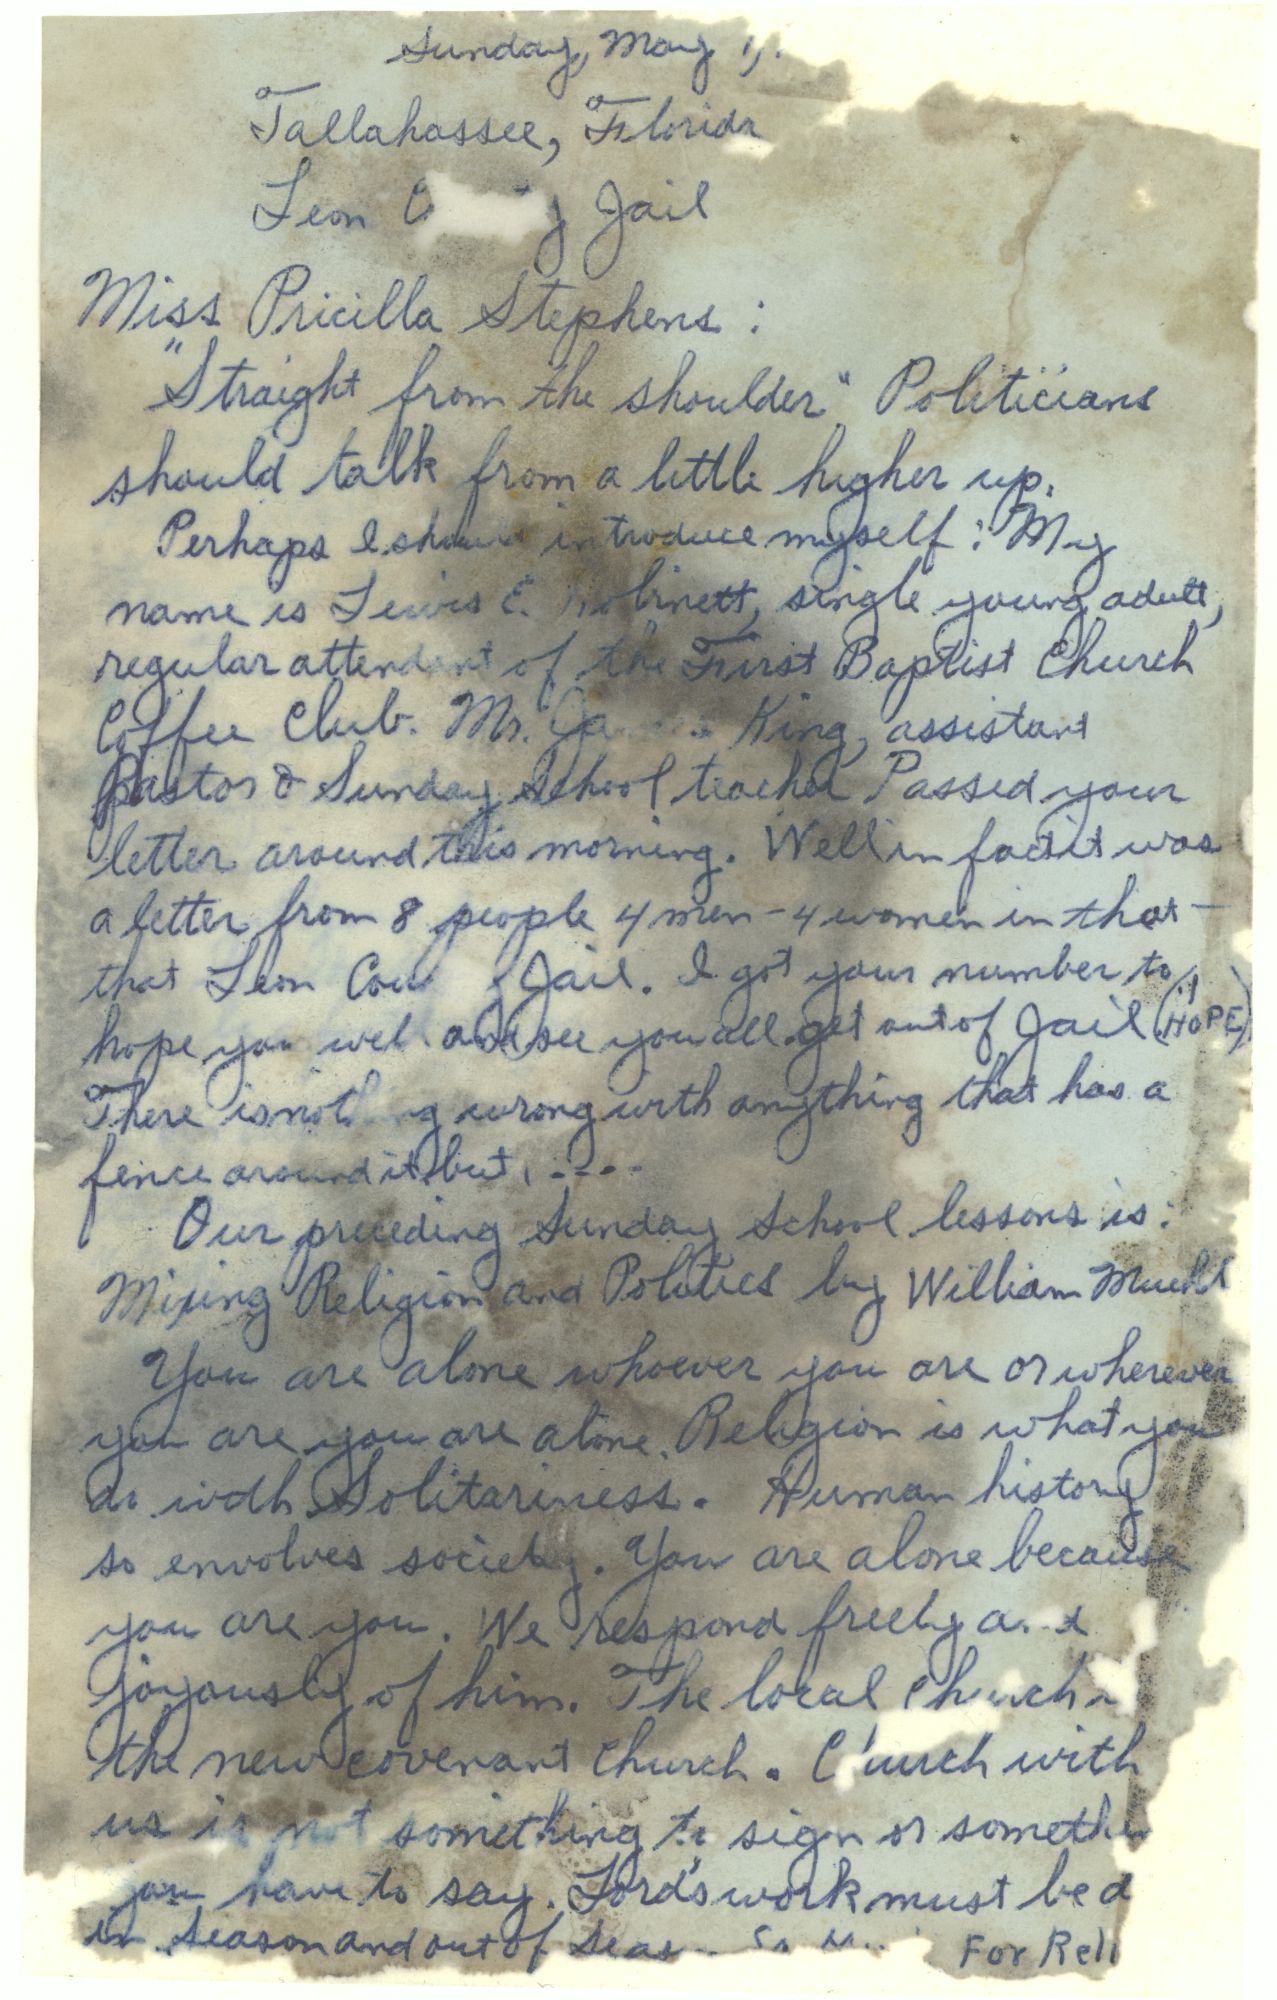 Sunday, May 1,
Tallahassee, Florida
Leon C y Jail
Miss Pricilla Stephens:
"Straight from the shoulder" Politicians
should talk from a little higher up.
Perhaps I should introduce myself: My
name is Lewis E. single young adult,
regular attendant of the First Baptist Church
Coffee Club. Mr. King, assistant
Pastor & Sunday School teacher Passed your
letter around this morning. Well in fact it was
a letter from 8 people 4 men - 4 women in that -
that Leon Cou y Jail. I got your number to
hope you well and see you all get out of Jail (HOPE)
There is nothing wrong with anything that has a
fence around it but, ....
Our preceding Sunday School lessons is:
Mixing Religion and Politics by William Muehl
You are alone whoever you are or wherever
you are you are alone. Religion is what you
do with Solitariness. Human history
so envolves society. You are alone because
you are you. We respond freely and
joyously of him. The local church -
the new covenant church. Church with
us is not something to sign or somethi
you have to say. Lord's work must be d
in season and out of Seas For Reli